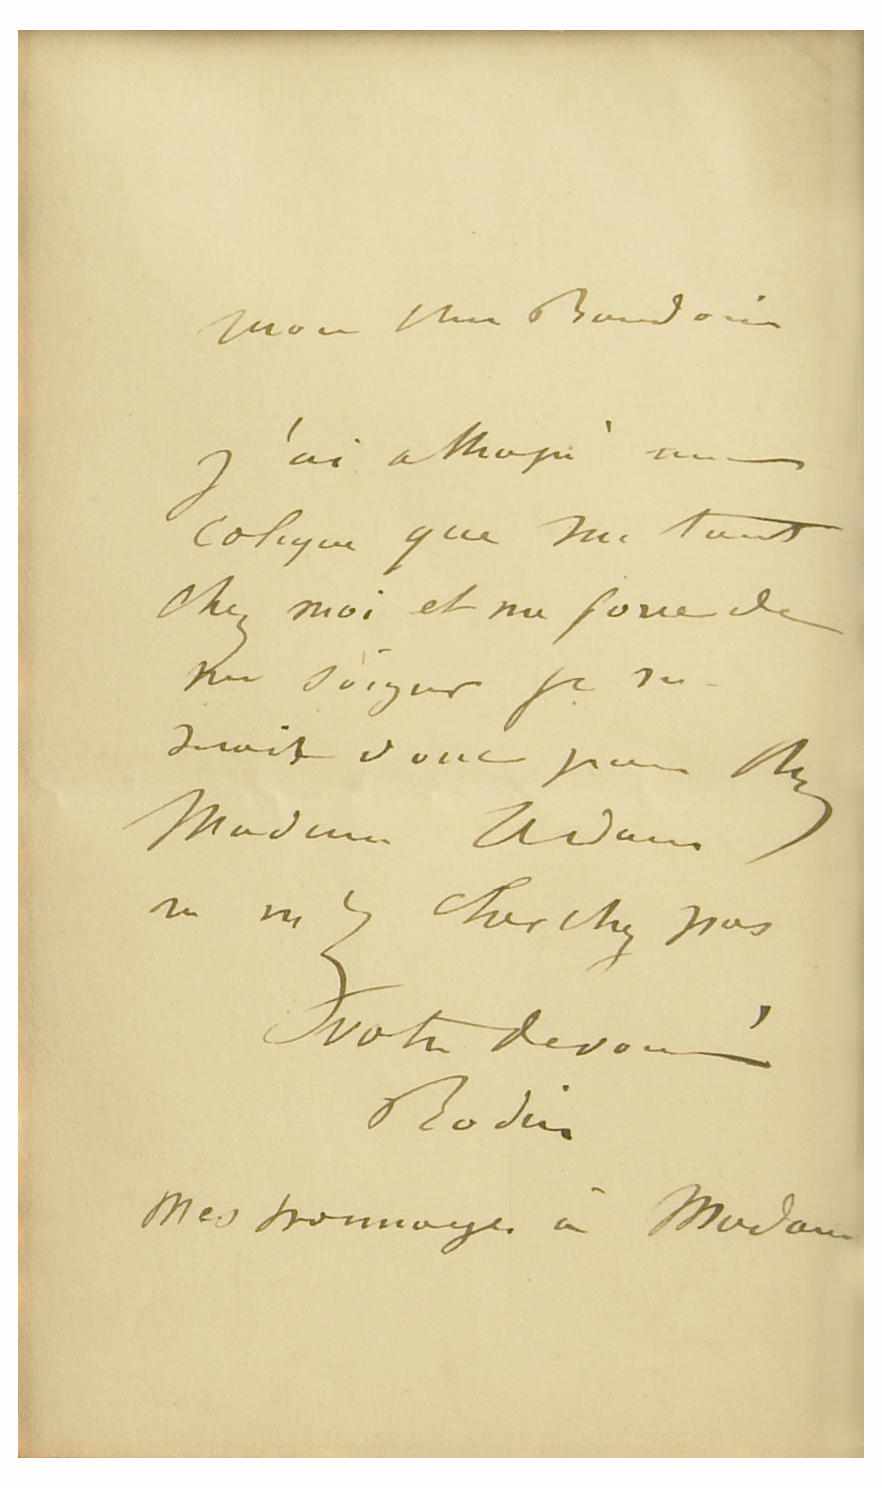 Mon cher Baudoin
j'ai attrapé une
colique que me tient
chez moi et me force de
me soigner je ne
serais donc pas chez
Madame Adam
ne m'y cherchez pas
votre devoué
Rodin
Mes hommages à Madame